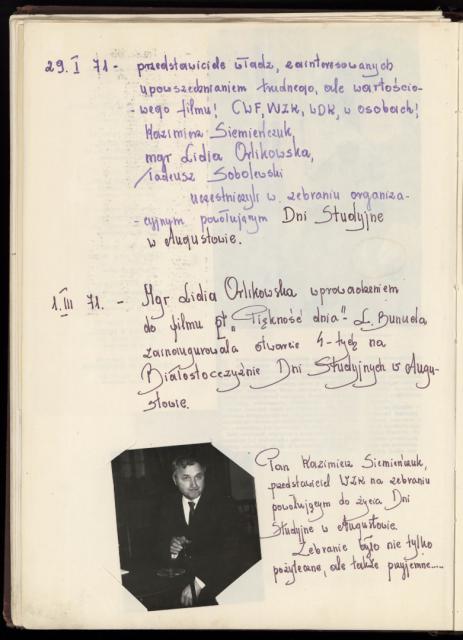 29. I 71 - przedstawiciele władz, zainteresowanych
upowszednianiem trudnego, ale wartościo-
-wego filmu! CWF, WZK, WDK, w osobach!
Kazimierz Siemieńczuk,
mgr Lidia Orlikowska,
Tadeusz Sobolewski
uczestniczyli w zebraniu organiza-
-cyjnym powołującym Dni Studyjne
w Augustowie.
1. III 71. - Mgr Lidia Orlikowska wprowadzeniem
do filmu pt „Piękność dnia" - L. Bunuela
zainaugurowała otwarcie 4-tych na
Białostocczyźnie Dni Studyjnych w Augu-
stowie.
Pan Kazimierz Siemieńczuk,
przedstawiciel WZK na zebraniu
powołującym do życia Dni
Studyjne w Augustowie.
Zebranie było nie tylko
pożyteczne, ale także przyjemne.....